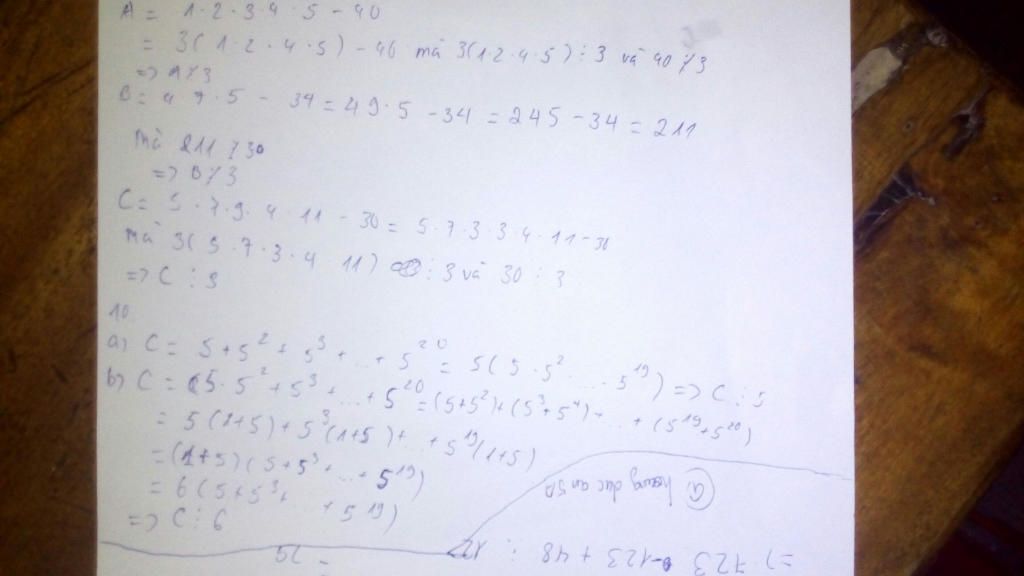 A = 1·2·3·4·5 - 40
= 3(1·2·4·5) - 40 mà 3(1·2·4·5)⋮3 và 40⋮̸3
=> A⋮̸3
B = 4 9·5 - 34 = 49·5 - 34 = 245 - 34 = 211
Mà 211⋮̸3
=> B⋮̸3
C = 5·7·9·4·11 - 30 = 5·7·3·3·4·11 - 30
Mà 3(5·7·3·4·11) ⋮3 và 30⋮3
=> C⋮3
10.
a) C = 5+5²+5³+...+5²⁰ = 5(5·5²....5¹⁹) => C⋮5
b) C = 5·5²+5³+...+5²⁰ = (5+5²)+(5³+5⁴)+...+(5¹⁹+5²⁰)
= 5(1+5)+5³(1+5)+...+5¹⁹(1+5)
= (1+5)(5+5³+...+5¹⁹)
= 6(5+5³+...+5¹⁹)
=> C⋮6
=> 723 - 123 + 48 ⋮ 12